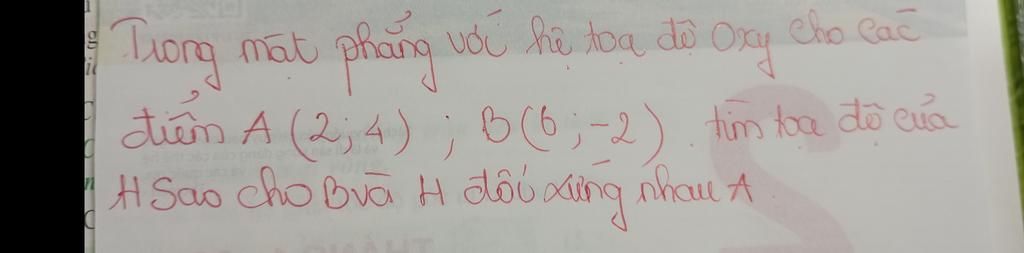 Trong mặt phẳng với hệ toạ độ Oxy cho các
điểm A (2; 4) ; B(6; -2). tìm toạ độ của
H Sao cho B và H đối xứng nhau A